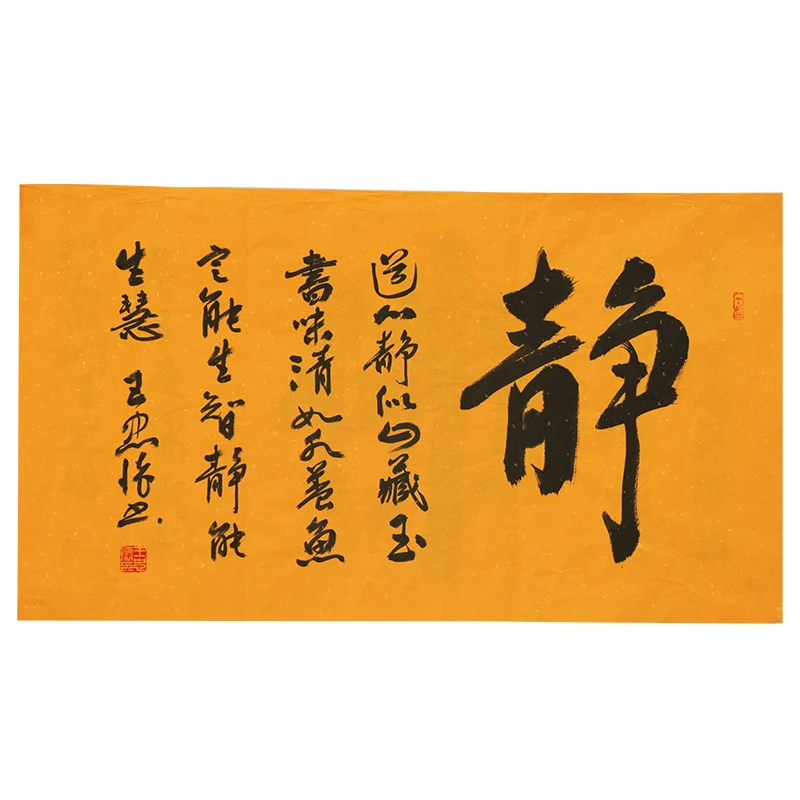 静
道心静似山藏玉
書味清如水養魚
定能生智静能
生慧 王忠勝书